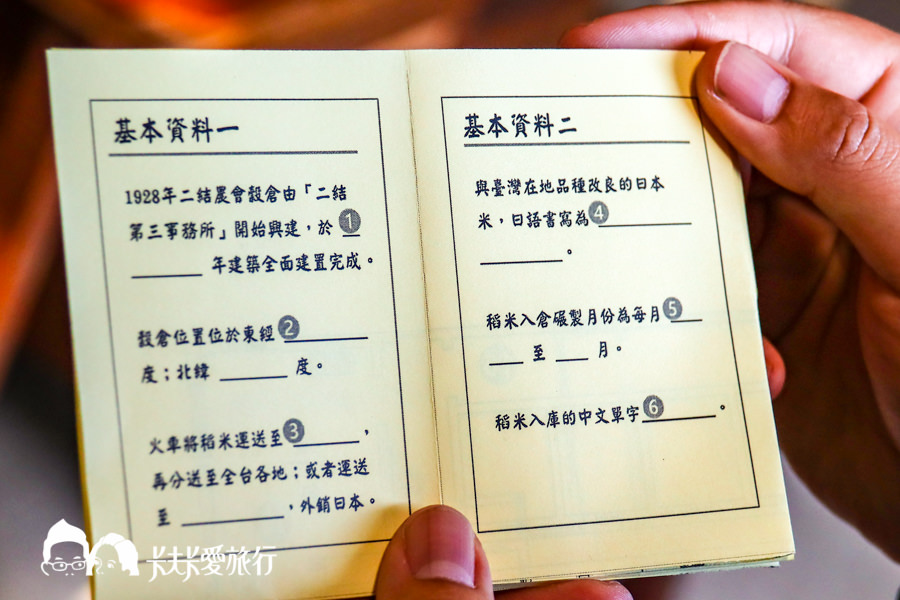 基本資料一
1928年二結農會穀倉由「二結
第三事務所」開始興建，於 1 __
______ 年建築全面建置完成。
穀倉位置位於東經 2 ________
度；北緯 ______ 度。
火車將稻米運送至 3 ______，
再分送至全台各地；或者運送
至 _________，外銷日本。
基本資料二
與臺灣在地品種改良的日本
米，日語書寫為 4 ________
_______。
稻米入倉碾製月份為每月 5 ___
___ 至 ___ 月。
稻米入庫的中文單字 6 _______。
卡琳卡大愛旅行